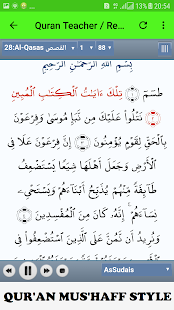 20:54
Quran Teacher / Re...
28:Al-Qasas القصص 1 88
بِسْمِ اللَّهِ الرَّحْمَٰنِ الرَّحِيمِ
طسٓمٓ ۝ تِلْكَ ءَايَٰتُ ٱلْكِتَٰبِ ٱلْمُبِينِ
۝ نَتْلُوا۟ عَلَيْكَ مِن نَّبَإِ مُوسَىٰ وَفِرْعَوْنَ
بِٱلْحَقِّ لِقَوْمٍ يُؤْمِنُونَ ۝ إِنَّ فِرْعَوْنَ عَلَا فِى
ٱلْأَرْضِ وَجَعَلَ أَهْلَهَا شِيَعًا يَسْتَضْعِفُ
طَآئِفَةً مِّنْهُمْ يُذَبِّحُ أَبْنَآءَهُمْ وَيَسْتَحْىِۦ
نِسَآءَهُمْ ۚ إِنَّهُۥ كَانَ مِنَ ٱلْمُفْسِدِينَ ۝
وَنُرِيدُ أَن نَّمُنَّ عَلَى ٱلَّذِينَ ٱسْتُضْعِفُوا۟ فِى
AsSudais
QUR'AN MUS'HAFF STYLE